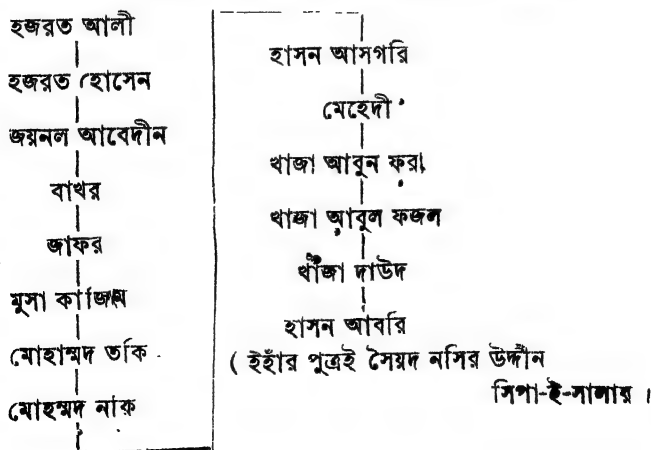 হজরত আলী
হজরত হোসেন
জয়নল আবেদীন
বাখর
জাফর
মুসা কাজিম
মোহাম্মদ তকি
মোহম্মদ নকি
হাসন আসগরি
মেহেদী
খাজা আবুন ফরা
খাজা আবুল ফজল
খাঁজা দাউদ
হাসন আবরি
( ইহাঁর পুত্রই সৈয়দ নসির উদ্দীন
সিপা-ই-সালার ।